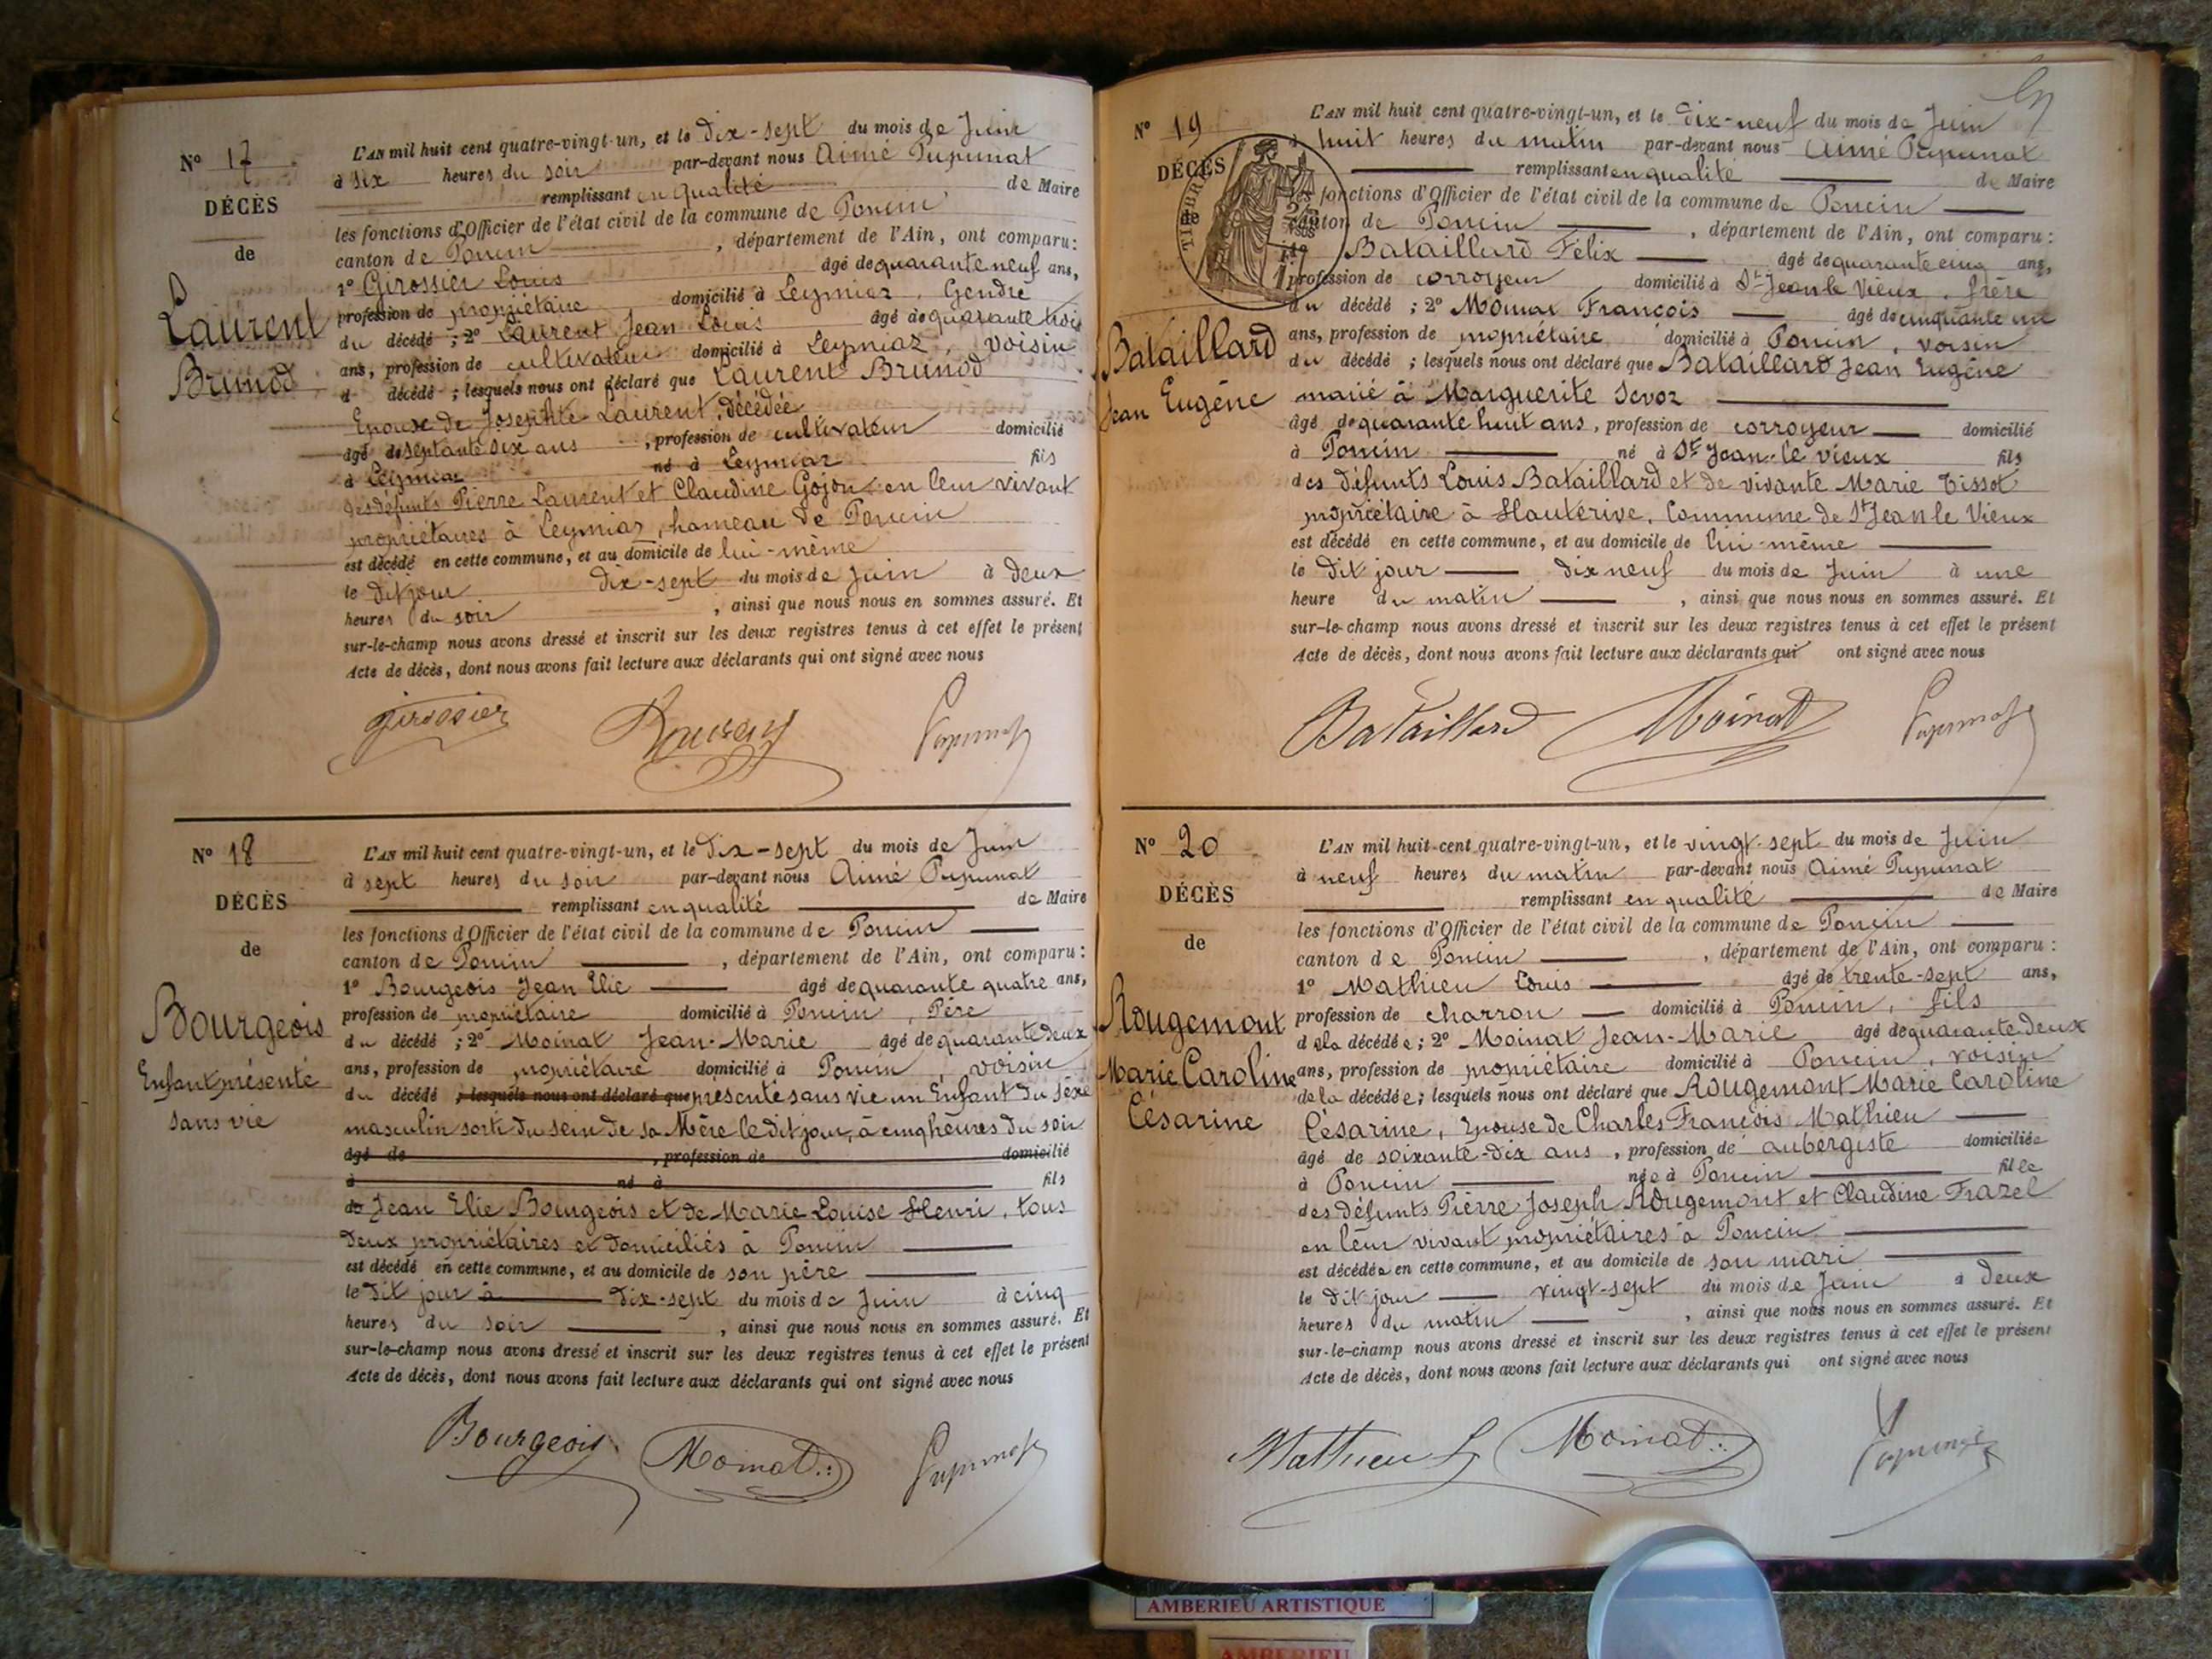 N° 17
DÉCÈS
de
Laurent
Brunod
L'AN mil huit cent quatre-vingt-un, et le dix-sept du mois de Juin
à six heures du soir par-devant nous Aimé Pupunat
remplissant en qualité de Maire
les fonctions d'Officier de l'état civil de la commune de Poncin
canton de Poncin, département de l'Ain, ont comparu :
1° Girossier Louis âgé de quarante neuf ans,
profession de propriétaire domicilié à Leymiaz, Gendre
du décédé ; 2° Laurent Jean Louis âgé de quarante trois
ans, profession de cultivateur domicilié à Leymiaz, voisin
d décédé ; lesquels nous ont déclaré que Laurent Brunod
Epoux de Josephte Laurent, décédée
âgé de septante six ans, profession de cultivateur domicilié
à Leymiaz né à Leymiaz fils
des défunts Pierre Laurent et Claudine Gojon en leur vivant
propriétaires à Leymiaz, hameau de Poncin
est décédé en cette commune, et au domicile de lui-même
le dit jour dix-sept du mois de Juin à deux
heures du soir, ainsi que nous nous en sommes assuré. Et
sur-le-champ nous avons dressé et inscrit sur les deux registres tenus à cet effet le présent
Acte de décès, dont nous avons fait lecture aux déclarants qui ont signé avec nous
Girossier Pupunat
N° 18
DÉCÈS
de
Bourgeois
Enfant présenté
sans vie
L'AN mil huit cent quatre-vingt-un, et le dix-sept du mois de Juin
à sept heures du soir par-devant nous Aimé Pupunat
remplissant en qualité de Maire
les fonctions d'Officier de l'état civil de la commune de Poncin
canton de Poncin, département de l'Ain, ont comparu :
1° Bourgeois Jean Elie âgé de quarante quatre ans,
profession de propriétaire domicilié à Poncin, Père
du décédé ; 2° Moinat Jean-Marie âgé de quarante deux
ans, profession de propriétaire domicilié à Poncin, voisin
du décédé ; lesquels nous ont déclaré que présenté sans vie un Enfant du sexe
masculin sorti du sein de sa Mère le dit jour, à cinq heures du soir
âgé de, profession de domicilié
à né à fils
de Jean Elie Bourgeois et de Marie Louise Henri, tous
deux propriétaires et domiciliés à Poncin
est décédé en cette commune, et au domicile de son père
le dit jour à dix-sept du mois de Juin à cinq
heures du soir, ainsi que nous nous en sommes assuré. Et
sur-le-champ nous avons dressé et inscrit sur les deux registres tenus à cet effet le présent
Acte de décès, dont nous avons fait lecture aux déclarants qui ont signé avec nous
Bourgeois Moinat Pupunat
N° 19
DÉCÈS
de
TIMBRE
Bataillard
Jean Eugène
L'AN mil huit cent quatre-vingt-un, et le dix-neuf du mois de Juin
à huit heures du matin par-devant nous Aimé Pupunat
remplissant en qualité de Maire
les fonctions d'Officier de l'état civil de la commune de Poncin
canton de Poncin, département de l'Ain, ont comparu :
1° Bataillard Félix âgé de quarante cinq ans,
profession de corroyeur domicilié à St Jean le Vieux, frère
du décédé ; 2° Moinat François âgé de cinquante un
ans, profession de propriétaire domicilié à Poncin, voisin
du décédé ; lesquels nous ont déclaré que Bataillard Jean Eugène
marié à Marguerite Sevoz
âgé de quarante huit ans, profession de corroyeur domicilié
à Poncin né à St Jean-le Vieux fils
des défunts Louis Bataillard et de vivante Marie Tissot
propriétaire à Hauterive, Commune de St Jean le Vieux
est décédé en cette commune, et au domicile de lui-même
le dit jour dix neuf du mois de Juin à une
heure du matin, ainsi que nous nous en sommes assuré. Et
sur-le-champ nous avons dressé et inscrit sur les deux registres tenus à cet effet le présent
Acte de décès, dont nous avons fait lecture aux déclarants qui ont signé avec nous
Bataillard Moinat Pupunat
N° 20
DÉCÈS
de
Rougemont
Marie Caroline
Césarine
L'AN mil huit cent quatre-vingt-un, et le vingt-sept du mois de Juin
à neuf heures du matin par-devant nous Aimé Pupunat
remplissant en qualité de Maire
les fonctions d'Officier de l'état civil de la commune de Poncin
canton de Poncin, département de l'Ain, ont comparu :
1° Mathieu Louis âgé de trente-sept ans,
profession de charron domicilié à Poncin, fils
de la décédée ; 2° Moinat Jean-Marie âgé de quarante deux
ans, profession de propriétaire domicilié à Poncin, voisin
de la décédée ; lesquels nous ont déclaré que Rougemont Marie Caroline
Césarine, Epouse de Charles François Mathieu
âgé de soixante-dix ans, profession de aubergiste domiciliée
à Poncin née à Poncin fille
des défunts Pierre Joseph Rougemont et Claudine Frazel
en leur vivant propriétaires à Poncin
est décédée en cette commune, et au domicile de son mari
le dit jour vingt-sept du mois de Juin à deux
heures du matin, ainsi que nous nous en sommes assuré. Et
sur-le-champ nous avons dressé et inscrit sur les deux registres tenus à cet effet le présent
Acte de décès, dont nous avons fait lecture aux déclarants qui ont signé avec nous
Mathieu L Moinat Pupunat
AMBERIEU ARTISTIQUE
AMBERIEU